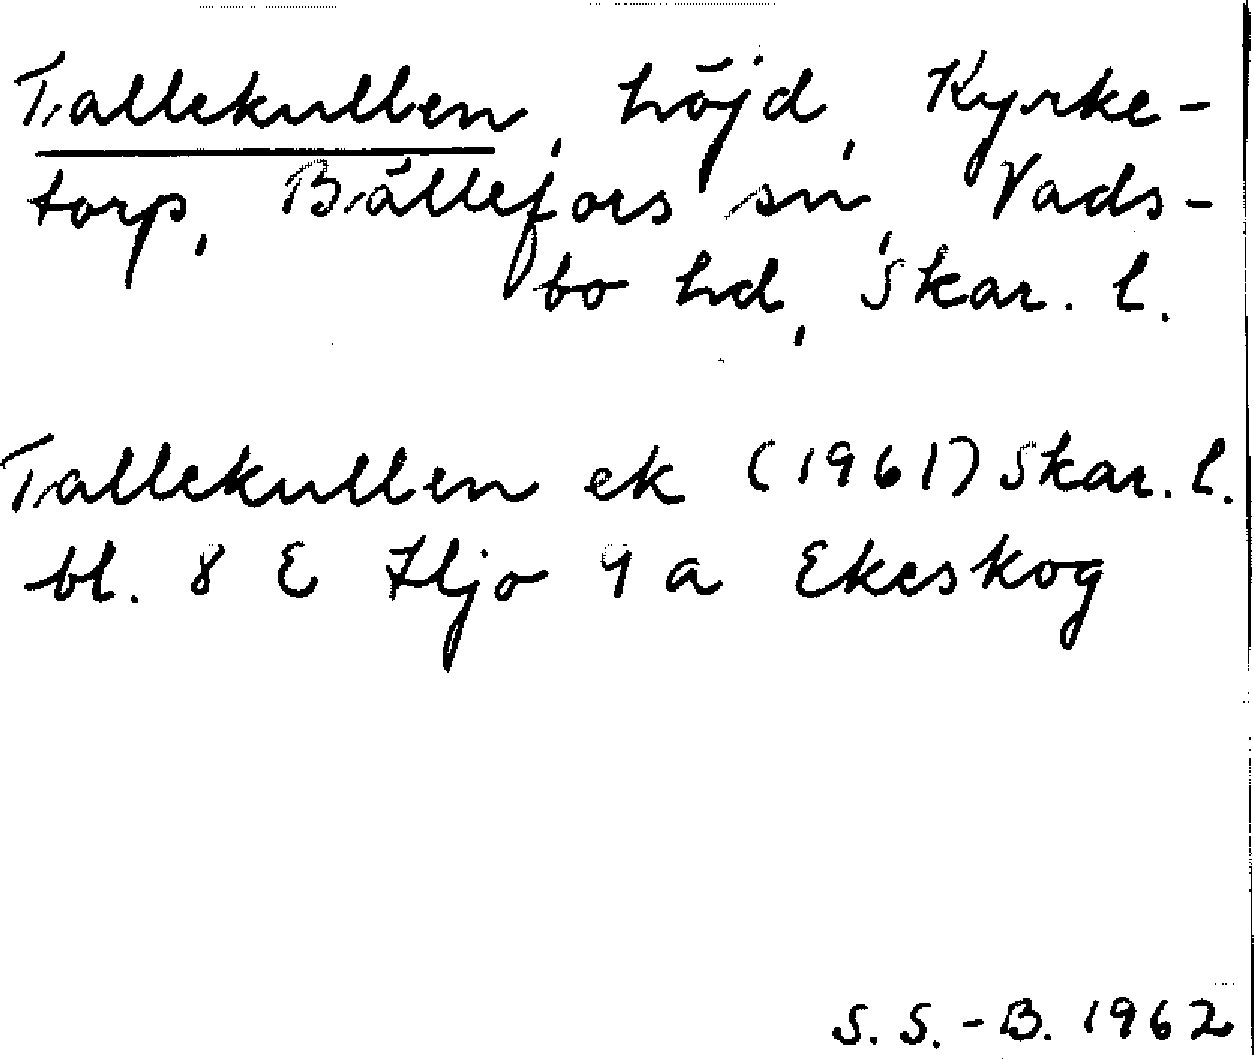 Tallekullen, höjd, Kyrke-
torp, Bällefors sn, Vads-
bo hd, Skar. l.
Tallekullen ek (1961) Skar. l.
bl. 8 E Hjo 9 a Ekeskog
S. S.-B. 1962